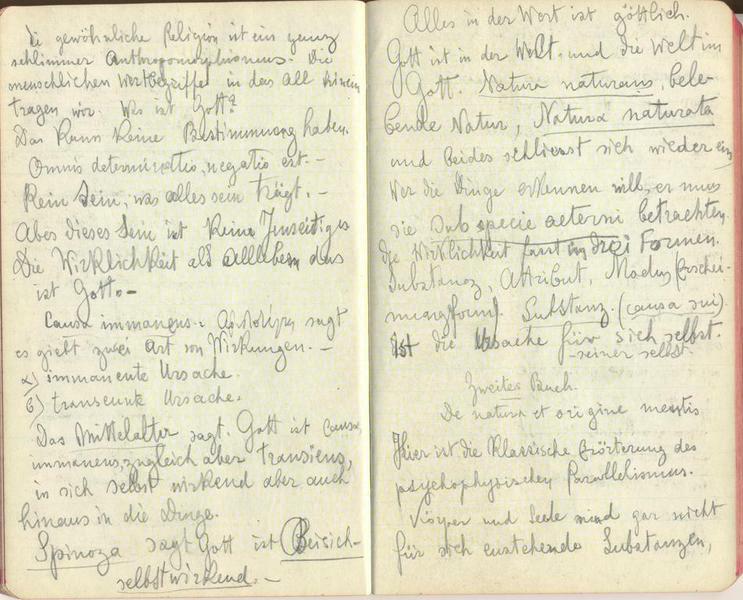 die gewöhnliche Religion ist ein ganz
schlimmer Anthropomorphismus. Die
menschlichen Wertbegriffe in das All hinein
tragen wir. Was ist Gott?
Das kann keine Bestimmung haben.
Omnis determinatio, negatio est. –
Kein Sein, was alles sein trägt. –
Aber dieses Sein ist keine Jenseitiges
Die Wirklichkeit als das
ist Gott. –
Causa immanens. sagt
es giebt zwei Art von Wirkungen. –
α) immanente Ursache.
β) transeunte Ursache.
Das Mittelalter sagt. Gott ist causa
immanens, zugleich aber transiens,
in sich selbst wirkend aber auch
hinaus in die Dinge.
Spinoza sagt Gott ist Beisich-
selbstwirkend. –
Alles in der Wort ist göttlich.
Gott ist in der Welt. und die Welt in
Gott. Natura naturans, bele-
bende Natur, Natura naturata
und beides schliesst sich wieder ein
Wer die Dinge erkennen will, er muss
sie sub specie aeterni betrachten.
die Wirklichkeit fasst in drei Formen.
Substanz, Attribut, Modus (Erschei-
nungsform). Substanz. (causa sui).
Ist die Ursache für sich selbst.
– seiner selbst.
Zweites Buch.
De natura et origine mentis
Hier ist die Klassische Erörterung des
psychophysischen Parallelismus.
Körper und Seele sind gar nicht
für sich enstehende Substanzen,